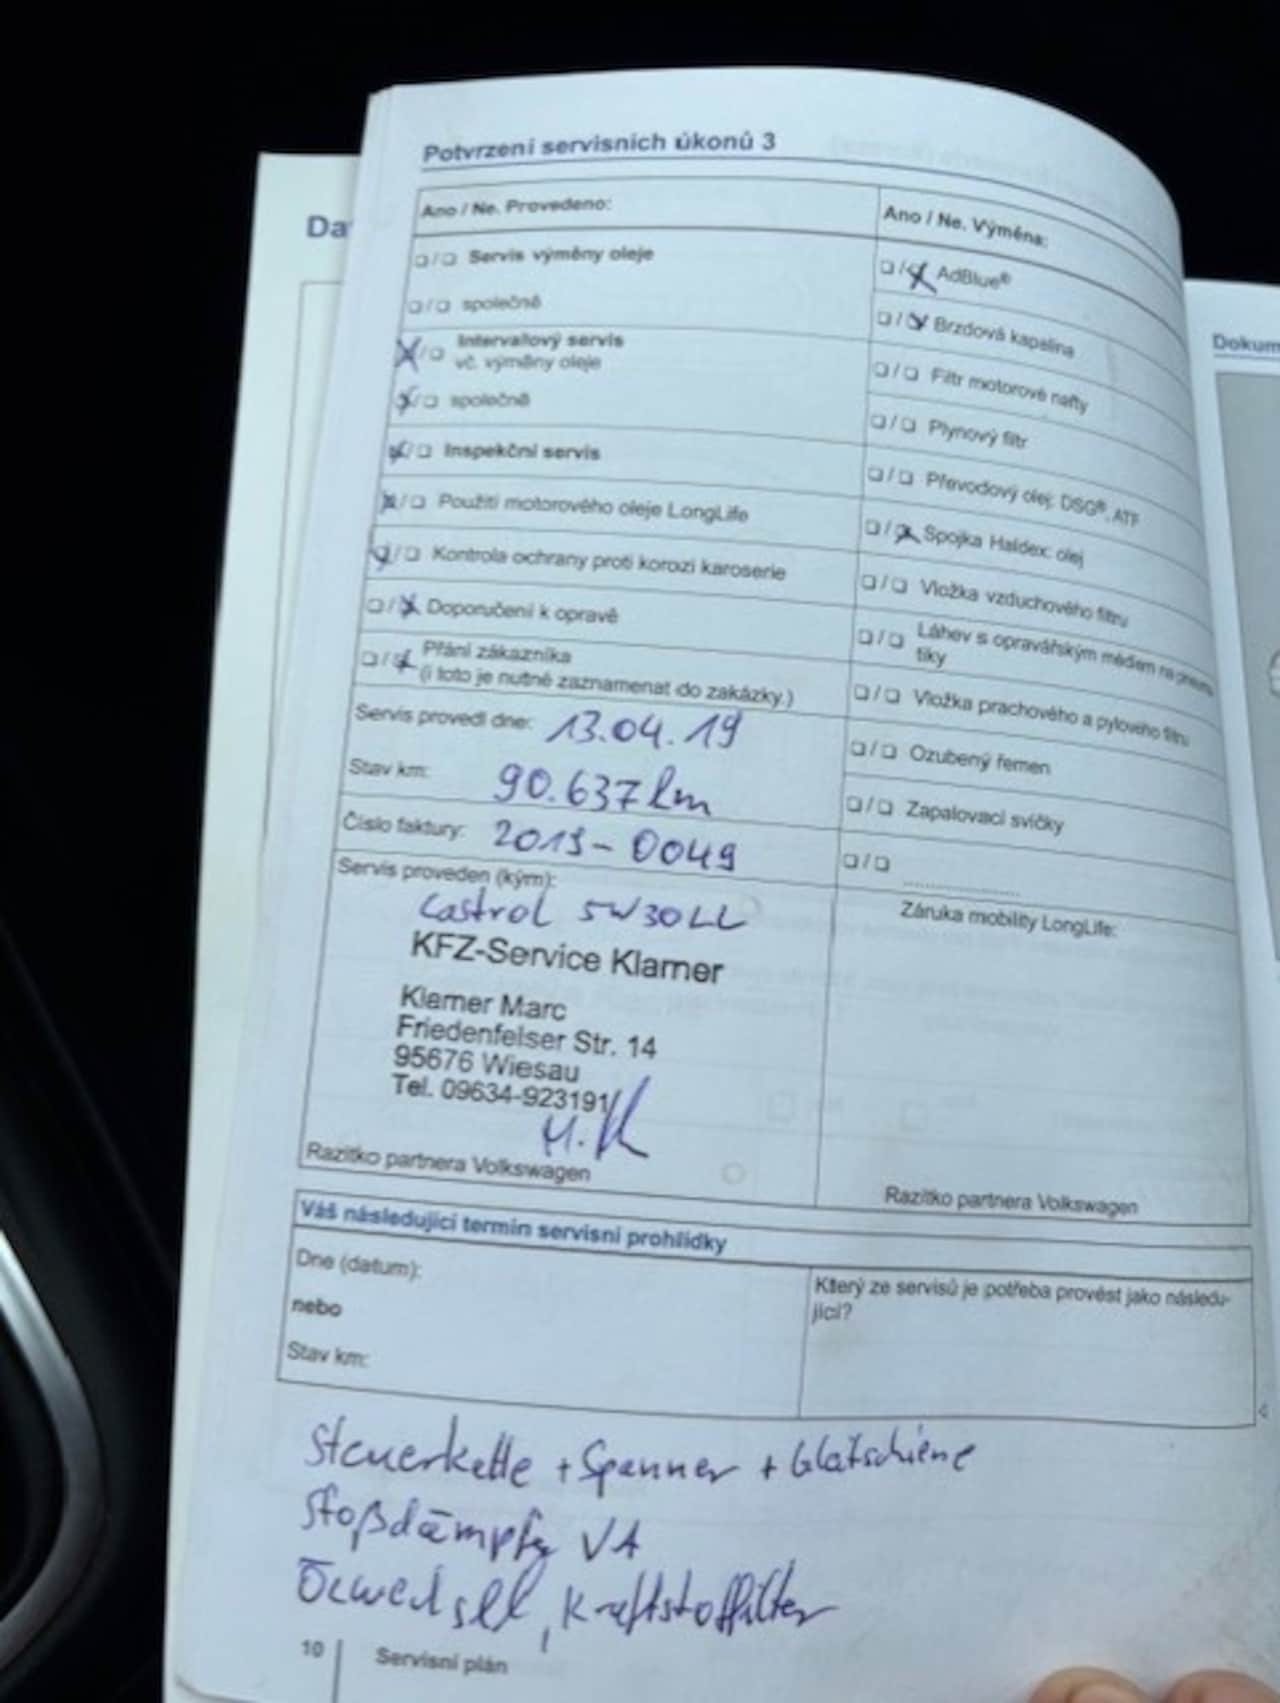 Potvrzení servisních úkonů 3
Da
Ano / Ne. Provedeno:
❑/❑ Servis výměny oleje
❑/❑ společně
❑/❑ Intervalový servis
vč. výměny oleje
❑/❑ společně
❑/❑ Inspekční servis
❑/❑ Použití motorového oleje LongLife
❑/❑ Kontrola ochrany proti korozi karoserie
❑/❑ Doporučení k opravě
❑/❑ Přání zákazníka
(i toto je nutné zaznamenat do zakázky.)
Servis provedl dne: 13.04.19
Stav km: 90.637 km
Číslo faktury: 2019-0049
Servis proveden (kým):
Castrol 5W30LL
KFZ-Service Klarner
Klarner Marc
Friedenfelser Str. 14
95676 Wiesau
Tel. 09634-923191
M.K
Razítko partnera Volkswagen
Ano / Ne. Výměna:
❑/❑ AdBlue®
❑/❑ Brzdová kapalina
❑/❑ Filtr motorové nafty
❑/❑ Plynový filtr
❑/❑ Převodový olej: DSG®, ATF
❑/❑ Spojka Haldex: olej
❑/❑ Vložka vzduchového filtru
❑/❑ Láhev s opravářským médiem na pneuma
tiky
❑/❑ Vložka prachového a pylového filtru
❑/❑ Ozubený řemen
❑/❑ Zapalovací svíčky
❑/❑ ....................
Záruka mobility LongLife:
Razítko partnera Volkswagen
Dokum
Váš následující termín servisní prohlídky
Dne (datum):
nebo
Stav km:
Který ze servisů je potřeba provést jako následu-
jící?
Steuerkette + Spanner + Gleitschiene
Stoßdämpfer VA
Ölwechsel, Kraftstofffilter
10 Servisní plán